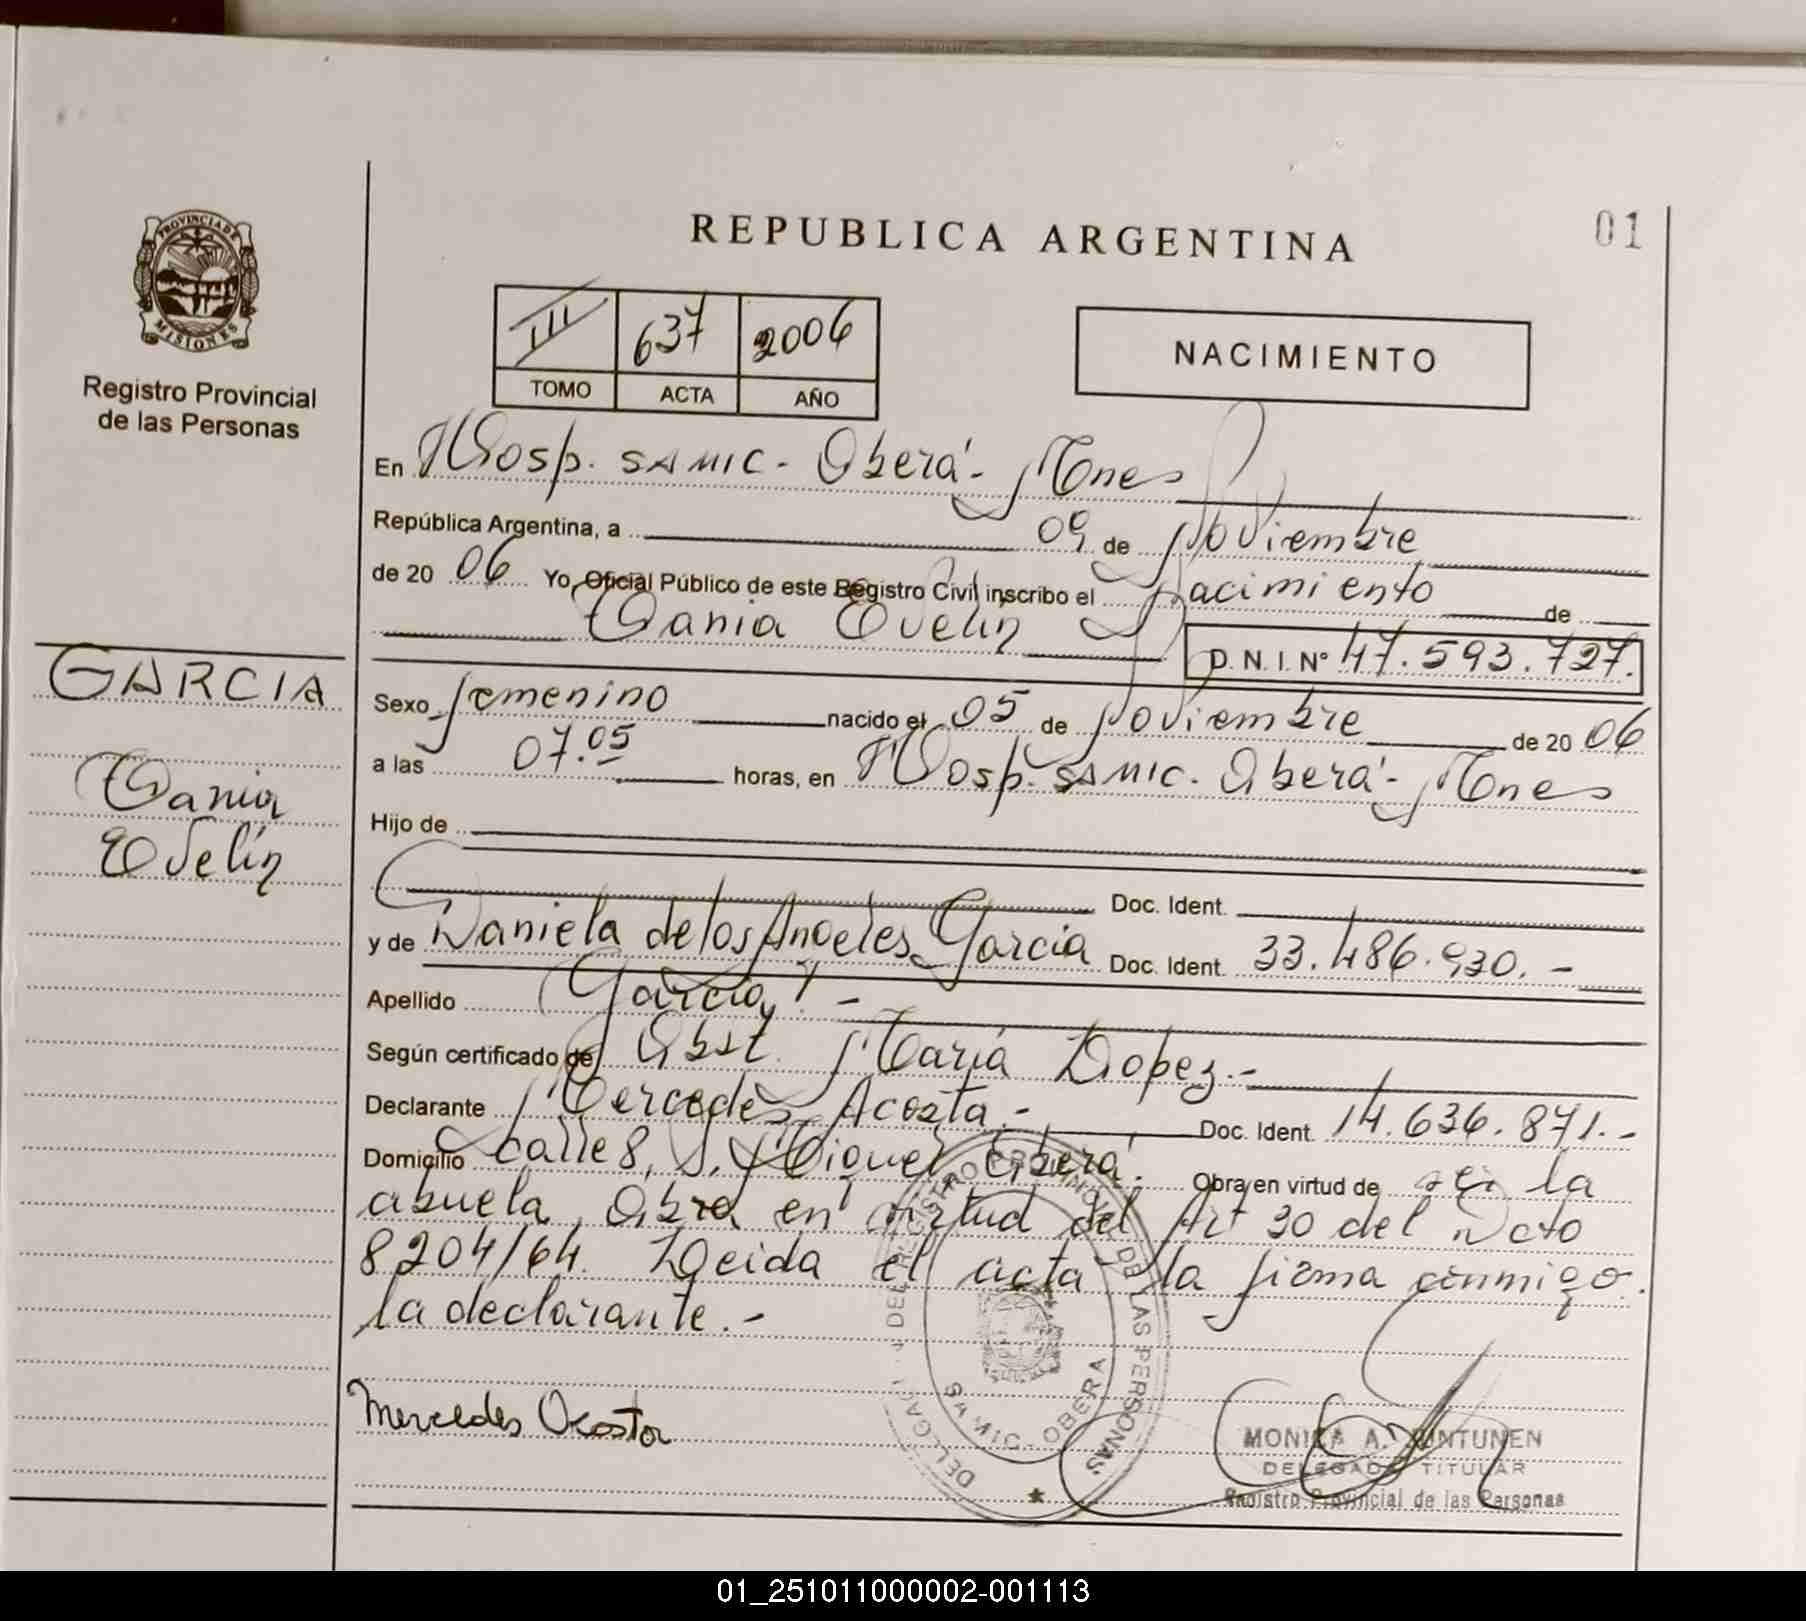 01
REPUBLICA ARGENTINA
PROVINCIA DE
MISIONES
Registro Provincial
de las Personas
III 637 2006
TOMO ACTA AÑO
NACIMIENTO
En Hosp. SAMIC - Oberá - Mnes
República Argentina, a 09 de Noviembre
de 20 06 Yo, Oficial Público de este Registro Civil inscribo el Nacimiento de
Tania Evelin D. N. I. Nº 47.593.727.
GARCIA
Tania
Evelín
Sexo femenino nacido el 05 de Noviembre de 20 06
a las 07.05 horas, en Hosp. SAMIC - Oberá - Mnes
Hijo de
Doc. Ident.
y de Daniela de los Angeles Garcia Doc. Ident. 33.486.930.-
Apellido Garcia.-
Según certificado de Obst. María Lopez.-
Declarante Mercedes Acosta.- Doc. Ident. 14.636.871.-
Domicilio calle 8, S. Miguel Oberá. Obra en virtud de ser la
abuela, Obra en virtud del Art 30 del Dcto
8204/64. Leida el acta la firma conmigo
la declarante.-
Mercedes Acosta
REGISTRO PROVINCIAL DE LAS PERSONAS
OBERA
MONICA A. PUNTUNEN
DELEGADA TITULAR
Registro Provincial de las Personas
01_251011000002-001113